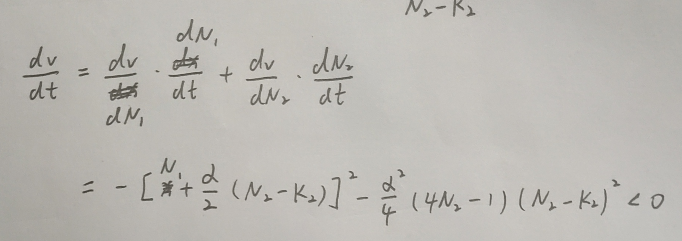 N₂-K₂
dv/dt = dv/dN₁ · dN₁/dt + dv/dN₂ · dN₂/dt
= -[N₁ + α/2 (N₂-K₂)]² - α²/4 (4N₂-1)(N₂-K₂)² < 0